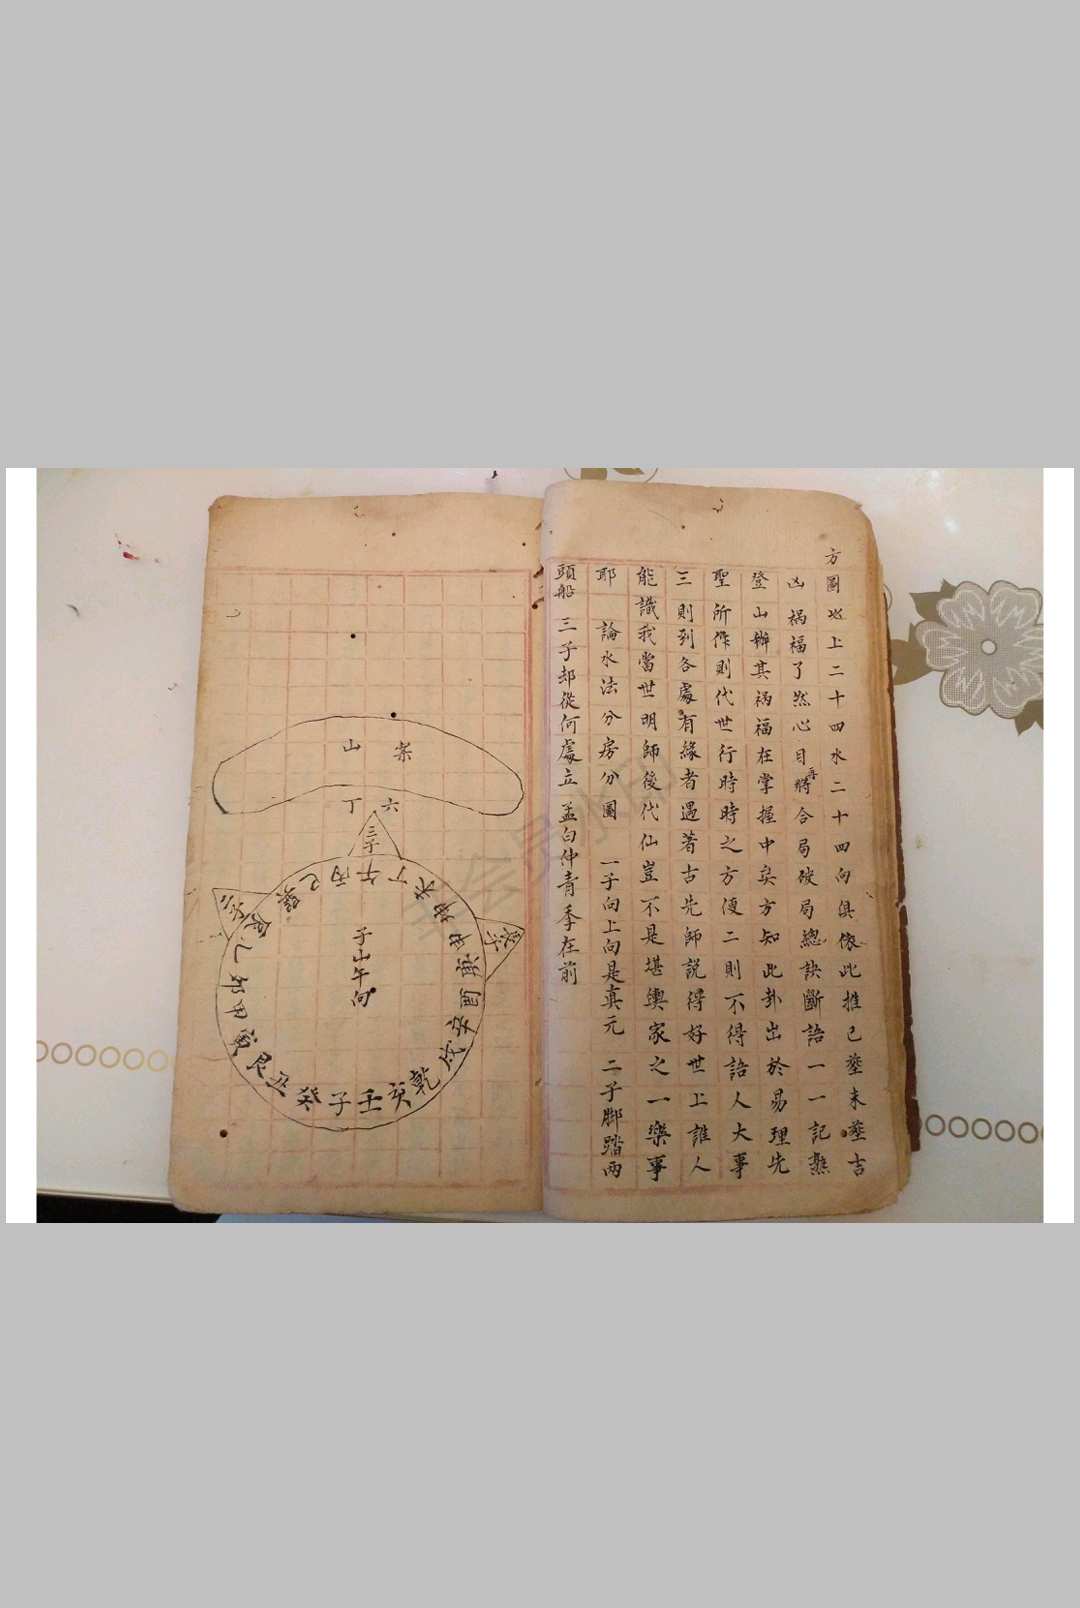 方圖地上二十四水二十四向俱依此推已塟未塟吉
凶禍福了然心目再將合局破局總訣斷語一一記熟
登山辦其禍福在掌握中矣方知此卦出於易理先
聖所作則代世行時時之方便二則不得語人大事
三則到各處有緣者遇著古先師説得好世上誰人
能識我當世明師後代仙豈不是堪輿家之一樂事
耶 論水法分房分圖 一子向上向是真元 二子脚踏兩
頭船 三子却從何處立孟白仲青季在前
案山
六丁
三子
巽巳丙午丁未坤申庚酉辛戌乾亥壬子癸丑艮寅甲卯乙辰
子山午向